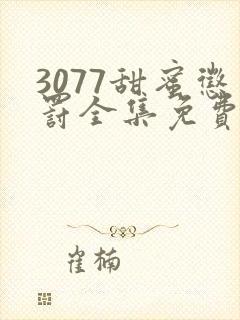 3077甜蜜惩
罚全集免費
崔楠